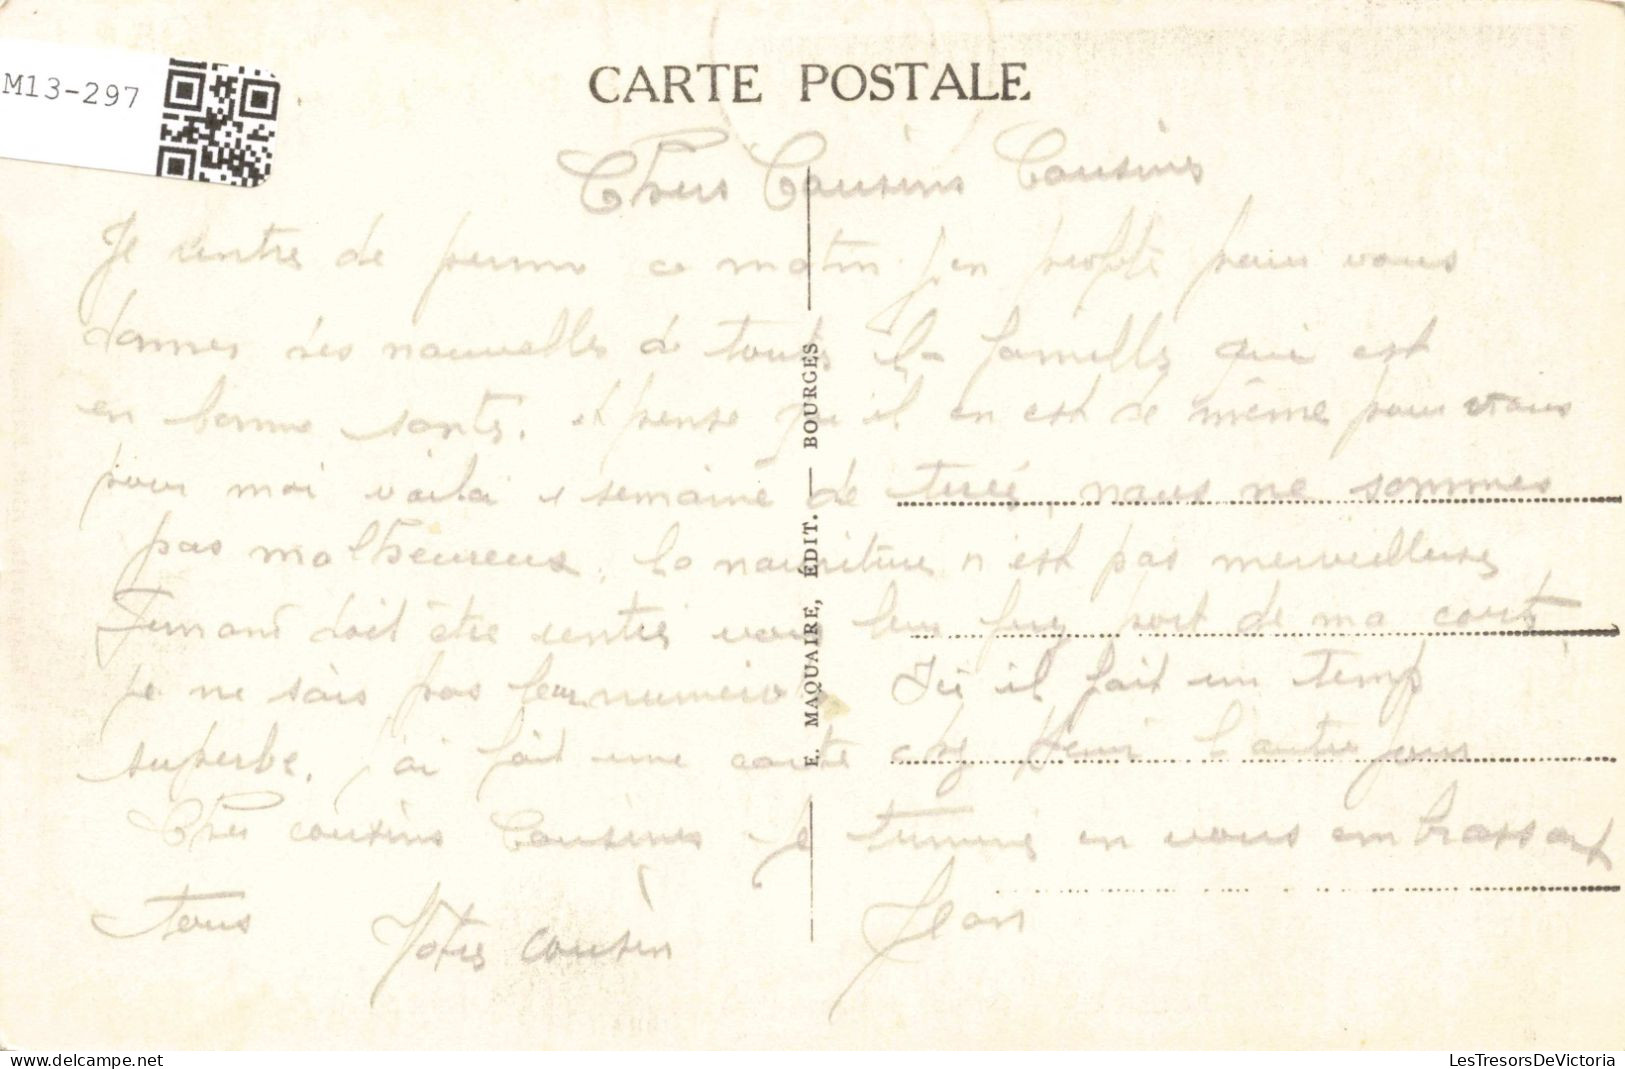 M13-297
CARTE POSTALE
Chers Cousins Cousines
Je rentre de perme ce matin j'en profite pour vous
donner des nouvelles de toute la famille qui est
en bonne santé. et pense qu'il en est de même pour vous
pour moi voila semaine de tirée, nous ne sommes
pas malheureux, la nourriture n'est pas merveilleuse
Fernand doit être rentré port de ma carte
je ne sais pas leur numero Ici il fait un temp
superbe. j'ai fait une carte chez l'autre jour
Cher cousins Cousines je termine en vous embrassant
tous Votre cousin Jean
E. MAQUAIRE, ÉDIT. — BOURGES
delcampe.net
LesTresorsDeVictoria